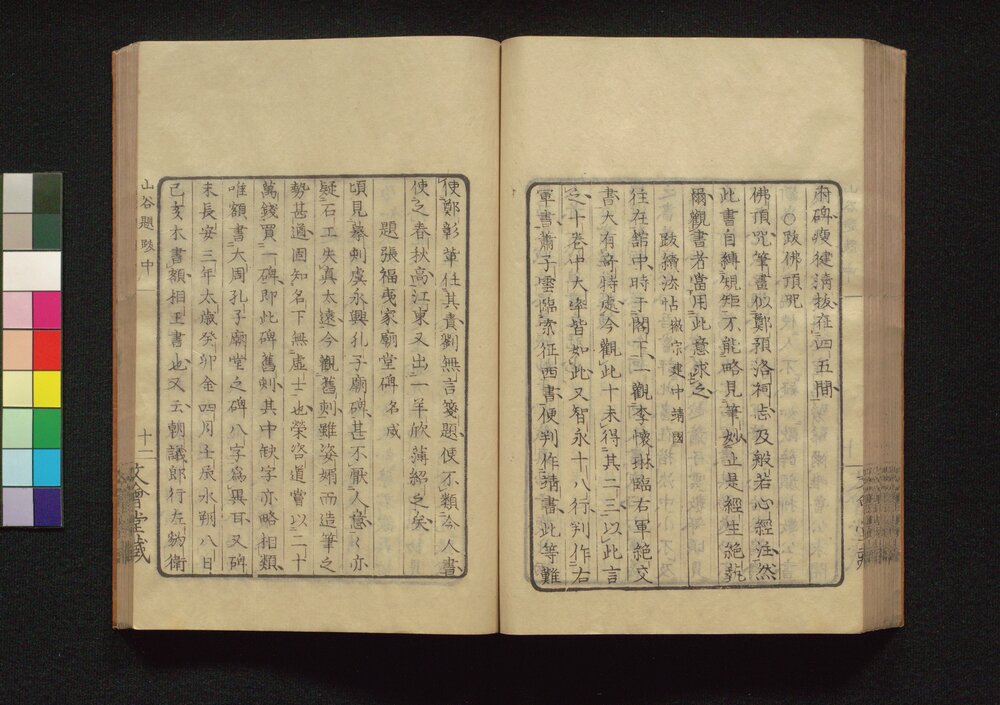 爾碑瘦健清拔在四五間
○跋佛頂咒
佛頂咒筆畫似鄭預洛祠志及般若心經注然
此書自縛規矩不能略見筆妙止是經生絕藝
爾觀書者當用此意求之
跋續法帖 徽宗建中靖國
往在館中時于閣下一觀李懷琳臨右軍絕交
書大有奇特處今觀此十未得其二三以此言
之十卷中大率皆如此又智永十八行判作右
軍書蕭子雲臨索征西書便判作靖書此等難
使鄭彰輩任其責劉無言箋題便不類今人書
使之春秋高江東又出一羊欣薄紹之矣
題張福夷家廟堂碑 名咸
頃見摹刻虞永興孔子廟碑甚不厭人意く亦
疑石工失真太遠今觀舊刻雖姿媚而造筆之
勢甚遒固知名下無虛士也榮咨道嘗以二十
萬錢買一碑即此碑舊刻其中缺字亦略相類
唯額書大周孔子廟堂之碑八字為異耳又碑
末長安三年太歲癸卯金四月壬辰水朔八日
己亥木書額相王書也又云朝議郎行左豹衛
山谷題跋中
十二
文會堂藏